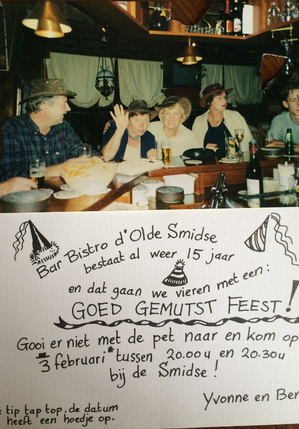 Bar Bistro d'Olde Smidse
bestaat al weer 15 jaar
en dat gaan we vieren met een:
GOED GEMUTST FEEST!
Gooi er niet met de pet naar en kom op
3 februari * tussen 20.00 u en 20.30 u
bij de Smidse!
Yvonne en Ber
tip tap top, de datum
heeft een hoedje op.